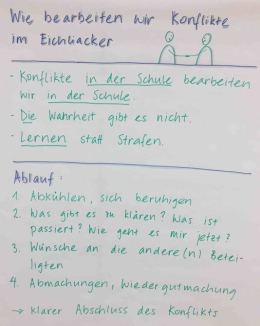 Wie bearbeiten wir Konflikte
im Eichliacker
- Konflikte in der Schule bearbeiten
wir in der Schule.
- Die Wahrheit gibt es nicht.
- Lernen statt Strafen.
Ablauf:
1. Abkühlen, sich beruhigen
2. Was gibt es zu klären? Was ist
passiert? Wie geht es mir jetzt?
3. Wünsche an die andere(n) Betei-
ligten
4. Abmachungen, Wiedergutmachung
→ klarer Abschluss des Konflikts